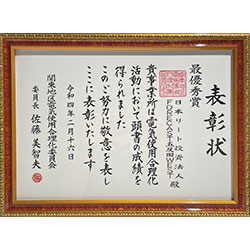 表彰状
最優秀賞
日本リート投資法人
FORECAST五反田WEST殿
貴事業所は電気使用合理化
活動において頭書の成績を
得られました
このご努力に敬意を表し
ここに表彰いたします
令和四年二月十六日
関東地区電気使用合理化委員会
委員長 佐藤美智夫